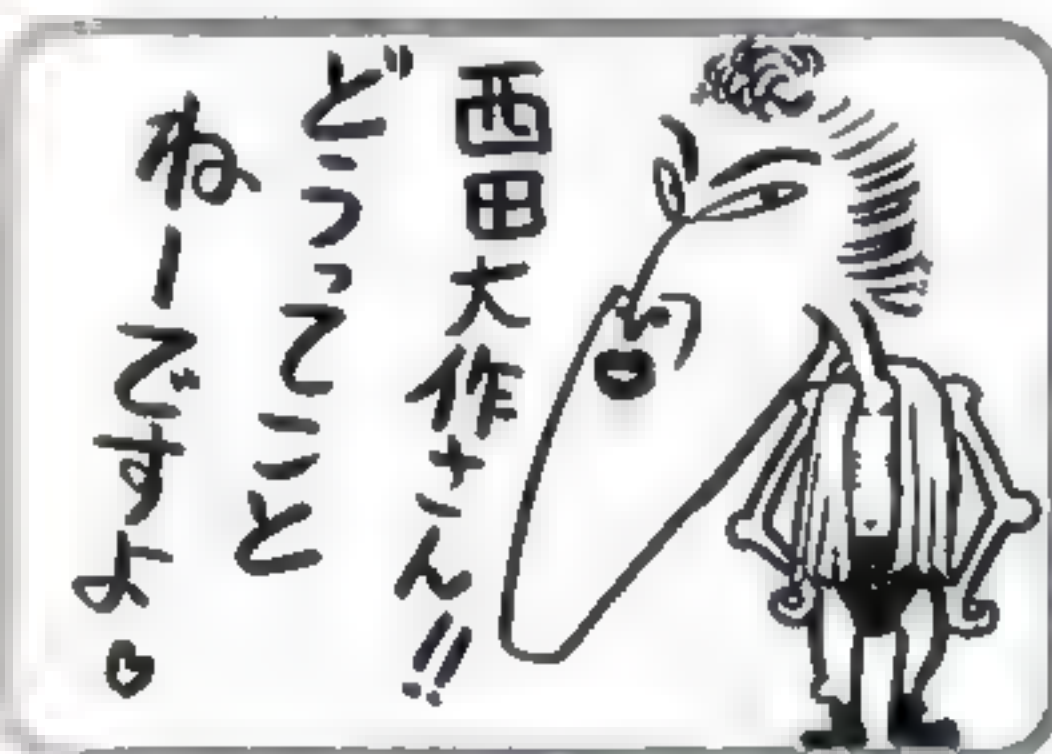 西田大作さん!!
どうってこと
ねーですよ。